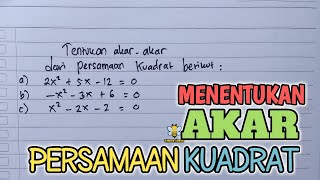 Tentukan akar-akar
dari persamaan kuadrat berikut :
a) 2x² + 5x - 12 = 0
b) -x² - 3x + 6 = 0
c) x² - 2x - 2 = 0
MENENTUKAN
AKAR
PERSAMAAN KUADRAT